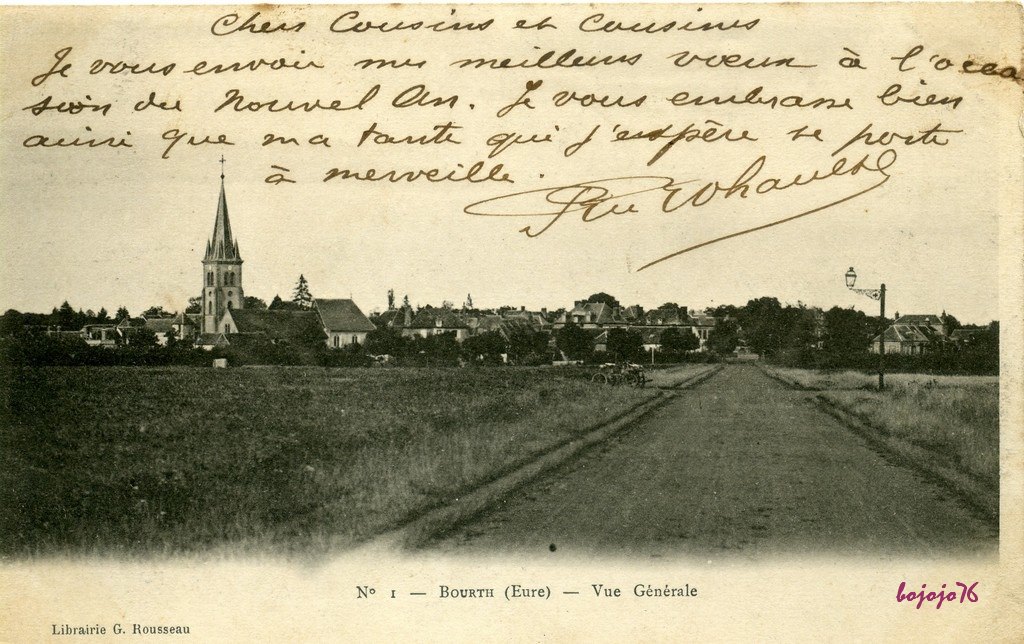 Chers Cousins et Cousines
Je vous envoie mes meilleurs vœux à l'occa
sion du Nouvel An. Je vous embrasse bien
ainsi que ma tante qui j'espère se porte
à merveille.
Rohault
No 1 — BOURTH (Eure) — Vue Générale
bojojo76
Librairie G. Rousseau